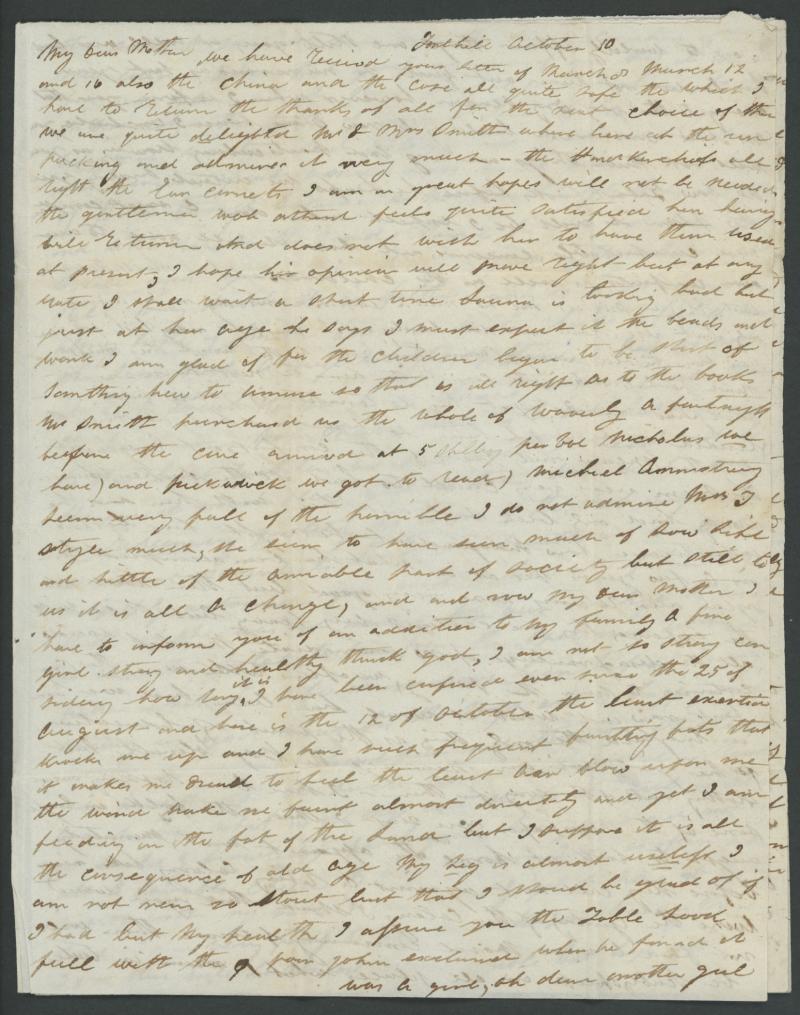 Foxhill October 10
My Dear Mother we have received your letter of March 8 March 12
and 16 also the China and the case all quite safe the which I
have to Return the thanks of all for the choice of the
we are quite delighted Mr & Mrs Smith where here at the un
packing and admired it very much - the Handkerchiefs all
right the Ear cornets I am in great hopes will not be needed
the gentleman feels quite satisfied her hearing
will Return and does not wish her to have them used
at present, I hope his opinion will prove right but at any
rate I shall wait a short time is looking bad but
just at her age he says I must expect it the beads and
work I am glad of for the children began to be short of
something new to amuse so that is all right as to the books
Mr Smith purchased us the whole of Waverly a fortnight
before the case arrived at 5 per Vol Nicholas we
have) and pickwick we got to read) Michael Armstrong
seems very full of the horrible I do not admire Mrs T
style much, she seems to have seen much of Low Life
and little of the amiable part of society but still to
us it is all a change, and and now my Dear Mother I
have to inform you of an addition to my family a fine
girl strong and healthy thank god, I am not so strong con
sidering how long it is, I have been confined ever since the 25 of
August and here is the 12 of October the least exertion
knocks me up and I have such frequent fainting fits that
it makes me dread to feel the least Air blow upon me
the wind makes me faint almost directly and yet I am
feeding on the fat of the Land but I suppose it is all
the consequence of old age My Leg is almost useless I
am not near so stout but that I should be glad of if
I had but my health I assure you the Table Loo
full with the 9 poor John exclaimed when he found it
was a girl, oh dear another girl